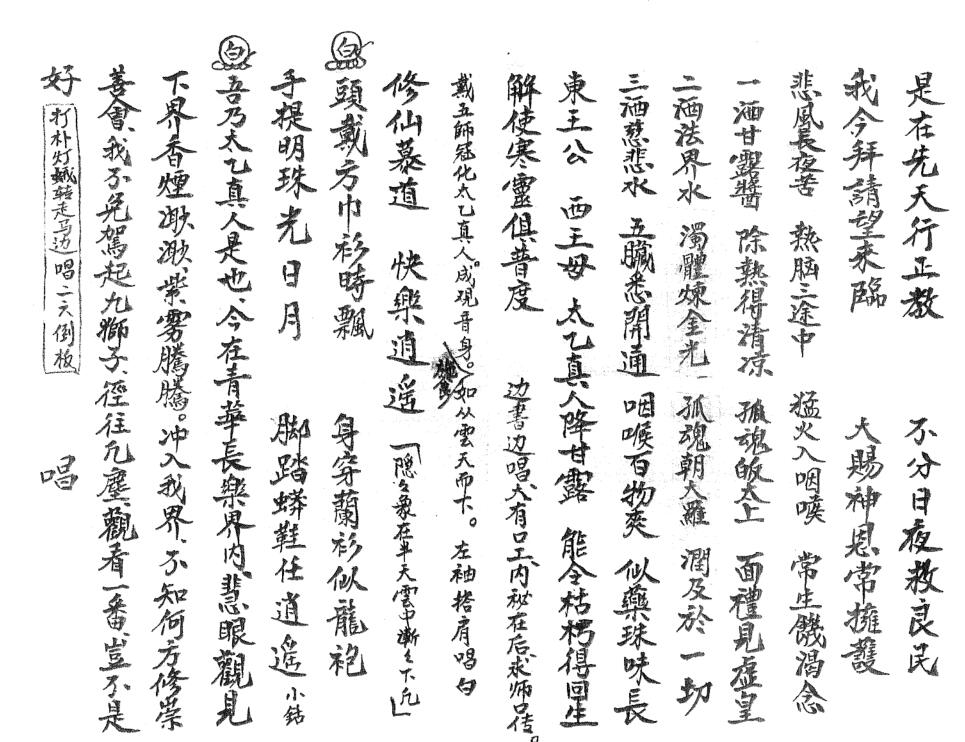 是在先天行正教　不分日夜救良民
我今拜請望來臨　大賜神恩常擁護
悲風長夜苦　熱脑三途中　猛火入咽喉　常生饑渴念
一洒甘露醬　除熱得清凉　孤魂皈太上　面禮見虛皇
二洒法界水　濁體煉金光　孤魂朝大羅　潤及於一切
三洒慈悲水　五臟悉開通　咽喉百物爽　似藥珠味長
東王公　西王母　太乙真人降甘露　能令枯朽得回生
解使寒靈俱普度　边書边唱大有口工、内祕在后、求师口传。
戴五師冠化太乙真人。成观音身。如从雲天而下。左袖搭肩唱白
修仙慕道　快樂逍遥「隐象在半天雲中漸々下凡」
白 頭戴方巾衫時飄　身穿蘭衫似龍袍
手提明珠光日月　脚踏蟒鞋任逍遥　小鈷
白 吾乃太乙真人是也、今在青華長樂界内、慧眼觀見
下界香煙渺渺、紫雾騰騰。冲入我界、不知何方修崇
善會、我不免駕起九獅子、徑往凡塵、觀看一番、豈不是
好 打朴灯蛾转走马边唱二六倒板　唱